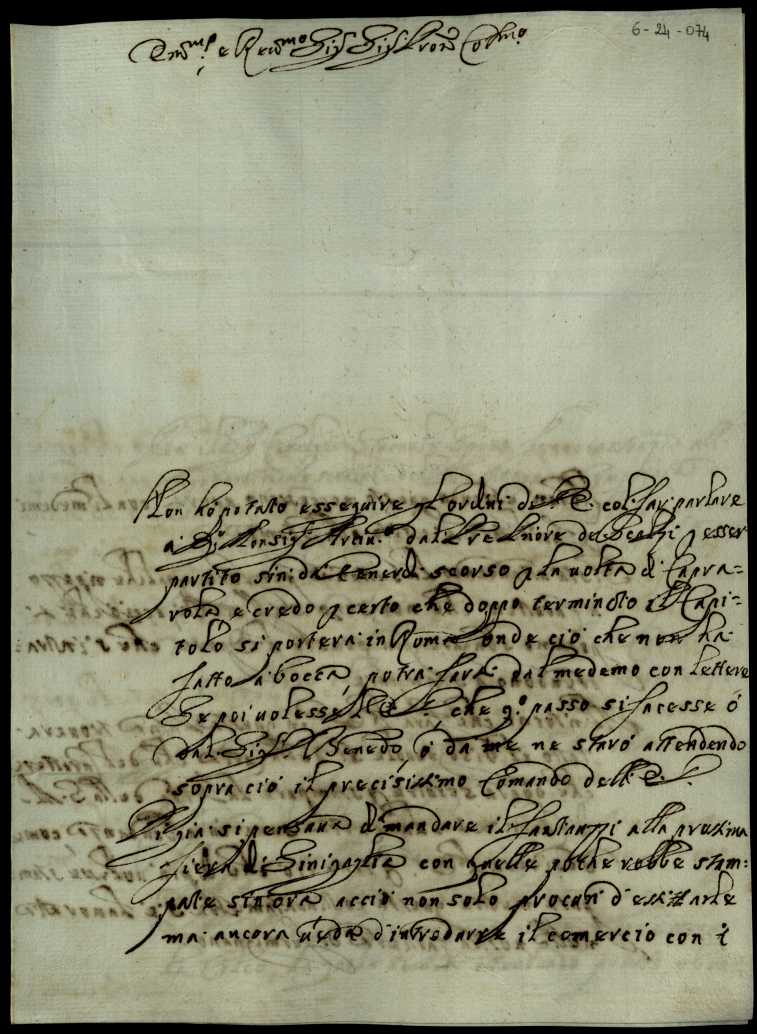 6-24-074
Em.mo e Rev.mo Sig. Sig. Pron. Col.mo
Non hò potuto esseguire gl'ordini di V. E. col far parlare
a Monsig. dal Pre Priore de esser
partito sin da Venerdi scorso p la uolta di Capra=
rola e credo p certo che doppo terminato il Capi=
tolo si porterà in Roma onde ciò che non ha
fatto a bocca, potrà farsi dal medemo con lettere
Se poi uolesse l'E. V. che q.o passo si facesse ò
dal Sig. Benedo, ò da me ne starò attendendo
sopra ciò il precisissimo Comando dell'E. V.
Di già si pensaua di mandare il Fantauzzi alla prossima
fiera di Sinigaglia con quelle poche robbe stam=
pate sin'ora acciò non solo procuri d'essitarle
ma ancora ueda d'introdurre il comercio con i